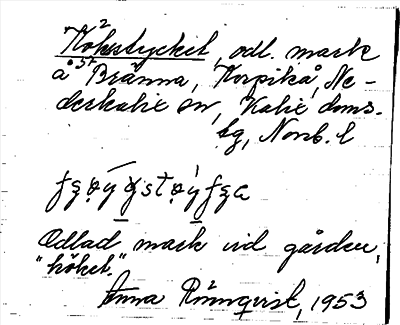 Hökesstycket, odl. mark
å Bränna, Korpikå, Ne-
derkalix sn, Kalix doms.
bg, Norrb. l
Odlad mark vid gården,
"höket."
Anna Rönnqvist, 1953